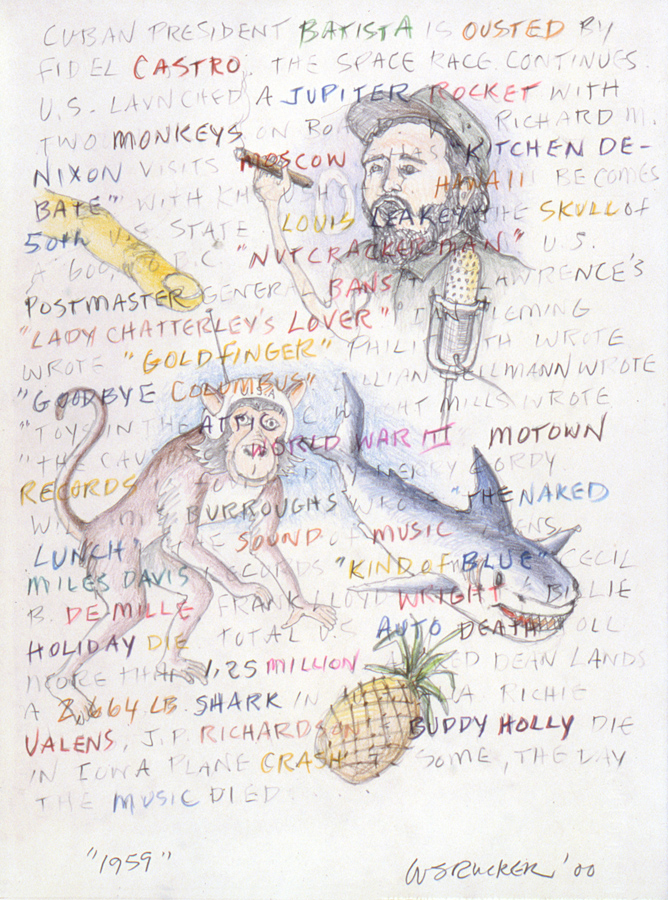 CUBAN PRESIDENT BATISTA IS OUSTED BY
FIDEL CASTRO. THE SPACE RACE CONTINUES.
U.S. LAUNCHED A JUPITER ROCKET WITH
TWO MONKEYS ON BOARD. V.P. RICHARD M.
NIXON VISITS MOSCOW HAS "KITCHEN DE-
BATE" WITH KH HAWAII BECOMES
50th U.S. STATE. LOUIS LEAKEY THE SKULL OF
A 600,000 B.C. "NUTCRACKER MAN" U.S.
POSTMASTER GENERAL BANS LAWRENCE'S
"LADY CHATTERLEY'S LOVER" IAN FLEMING
WROTE "GOLDFINGER" PHILIP ROTH WROTE
"GOODBYE COLUMBUS" LILLIAN HELLMANN WROTE
"TOYS IN THE ATTIC" C. WRIGHT MILLS WROTE
"THE CAU WORLD WAR III MOTOWN
RECORDS IS FOUNDED BY BERRY GORDY
WILLIAM BURROUGHS WROTE "THE NAKED
LUNCH" THE SOUND OF MUSIC OPENS
MILES DAVIS RECORDS "KIND OF BLUE" CECIL
B. DE MILLE FRANK LLOYD WRIGHT & BILLIE
HOLIDAY DIE. TOTAL U.S. AUTO DEATH TOLL
MORE THAN 1.25 MILLION ALFRED DEAN LANDS
A 2,664 LB. SHARK IN RICHIE
VALENS, J.P. RICHARDSON & BUDDY HOLLY DIE
IN IOWA PLANE CRASH SOME, THE DAY
THE MUSIC DIED.....
USA
"1959"
WS RUCKER '00